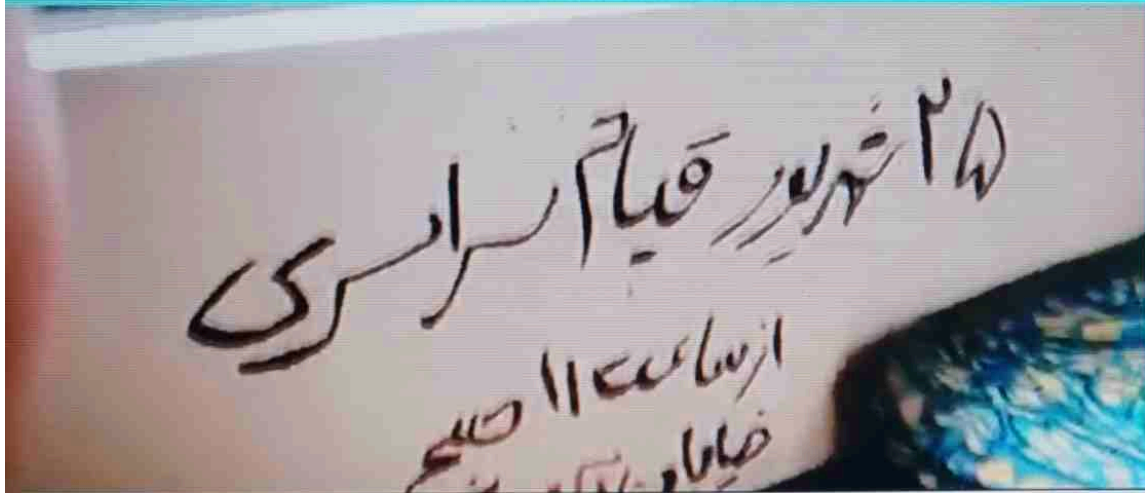 ۲۵ شهریور قیام سراسری
از ساعت ۱۱ صبح
خیابان